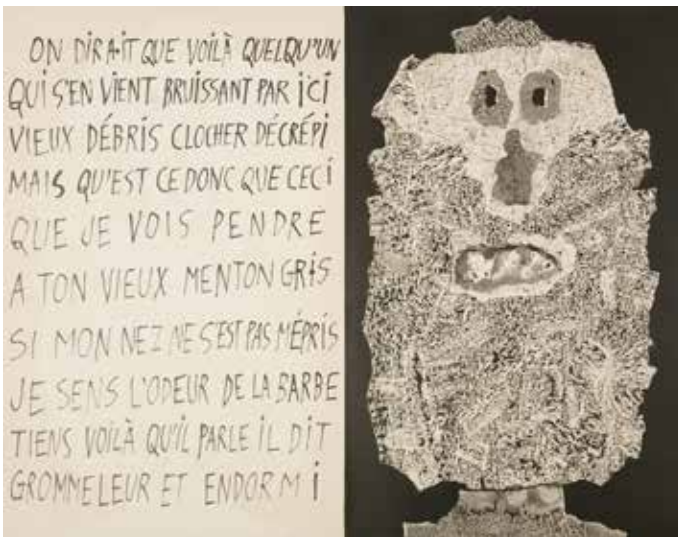 ON DIRAIT QUE VOILÀ QUELQU'UN
QUI S'EN VIENT BRUISSANT PAR ICI
VIEUX DÉBRIS CLOCHER DÉCRÉPI
MAIS QU'EST CE DONC QUE CECI
QUE JE VOIS PENDRE
A TON VIEUX MENTON GRIS
SI MON NEZ NE S'EST PAS MÉPRIS
JE SENS L'ODEUR DE LA BARBE
TIENS VOILÀ QU'IL PARLE IL DIT
GROMMELEUR ET ENDORMI